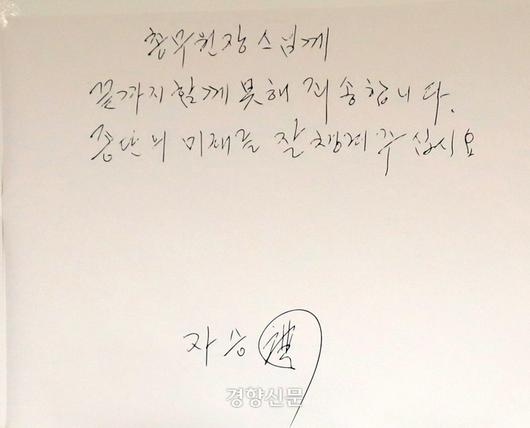 총무원장스님께
끝까지함께 못해 죄송합니다.
종단의 미래를 잘 챙겨 주십시요
자승
경향신문